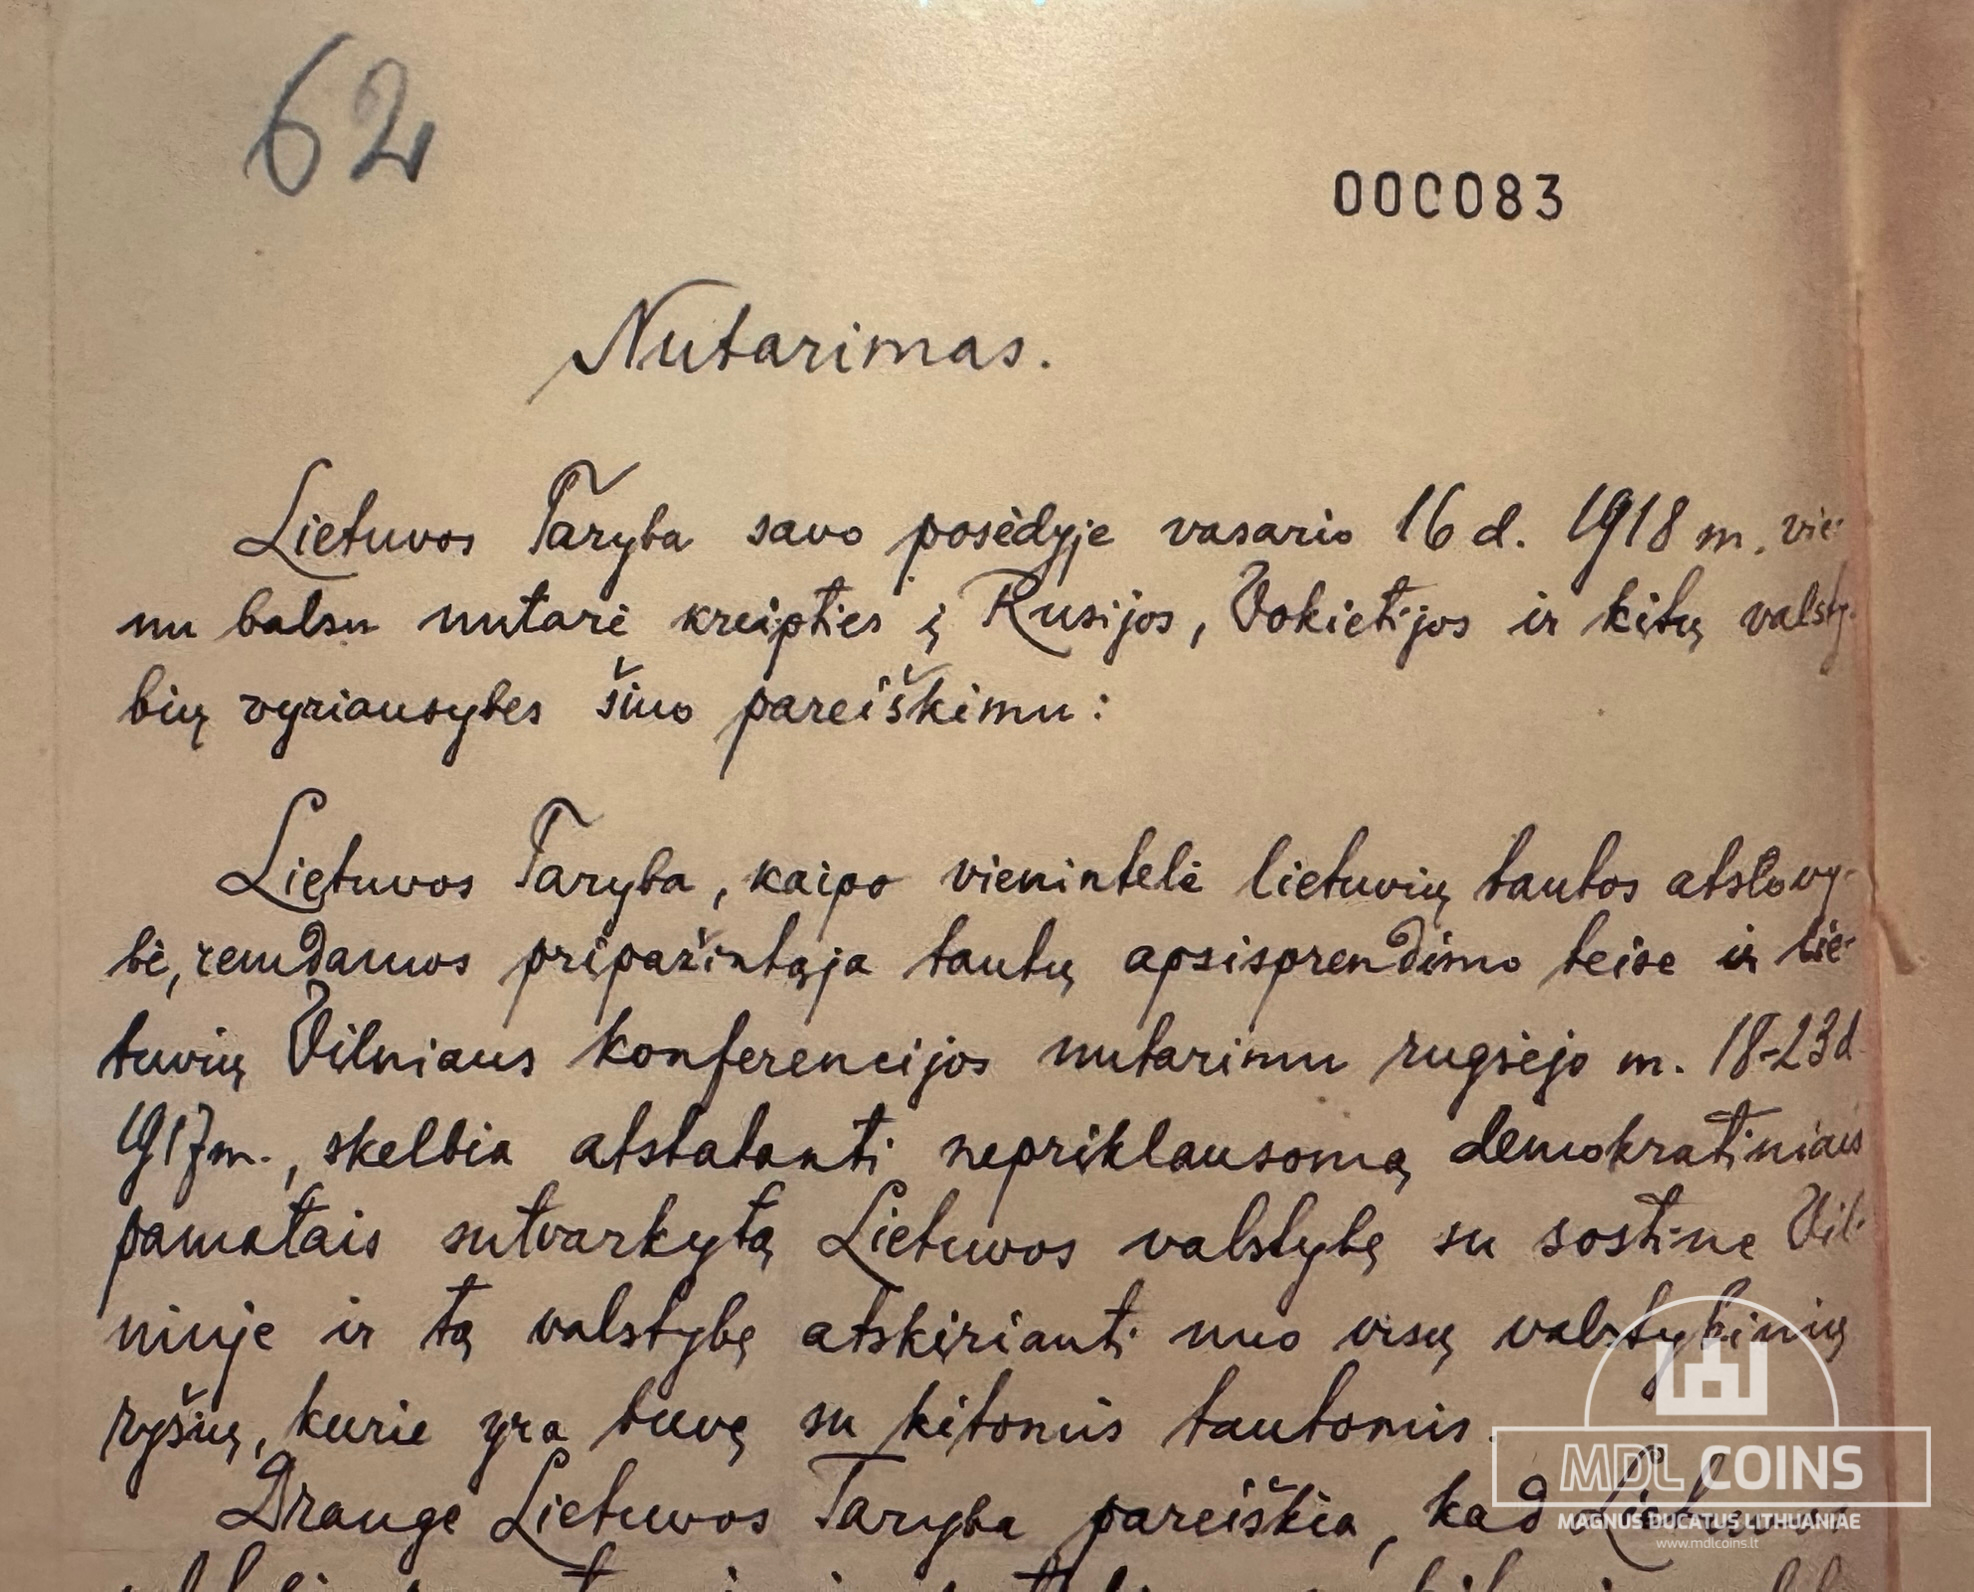 62
000083
Nutarimas.
Lietuvos Taryba savo posėdyje vasario 16 d. 1918 m. vie-
nu balsu nutarė kreipties į Rusijos, Vokietijos ir kitų valsty-
bių vyriausybes šiuo pareiškimu:
Lietuvos Taryba, kaipo vienintelė lietuvių tautos atstovy-
bė, remdamos pripažintąja tautų apsisprendimo teise ir lie-
tuvių Vilniaus konferencijos nutarimu rugsėjo m. 18-23 d.
1917 m., skelbia atstatanti nepriklausomą demokratiniais
pamatais sutvarkytą Lietuvos valstybę su sostine Vil-
niuje ir tą valstybę atskirianti nuo visų valstybinių
ryšių, kurie yra buvę su kitomis tautomis.
Drauge Lietuvos Taryba pareiškia, kad Lietuvos
MDL COINS
MAGNUS DUCATUS LITHUANIAE
www.mdlcoins.lt